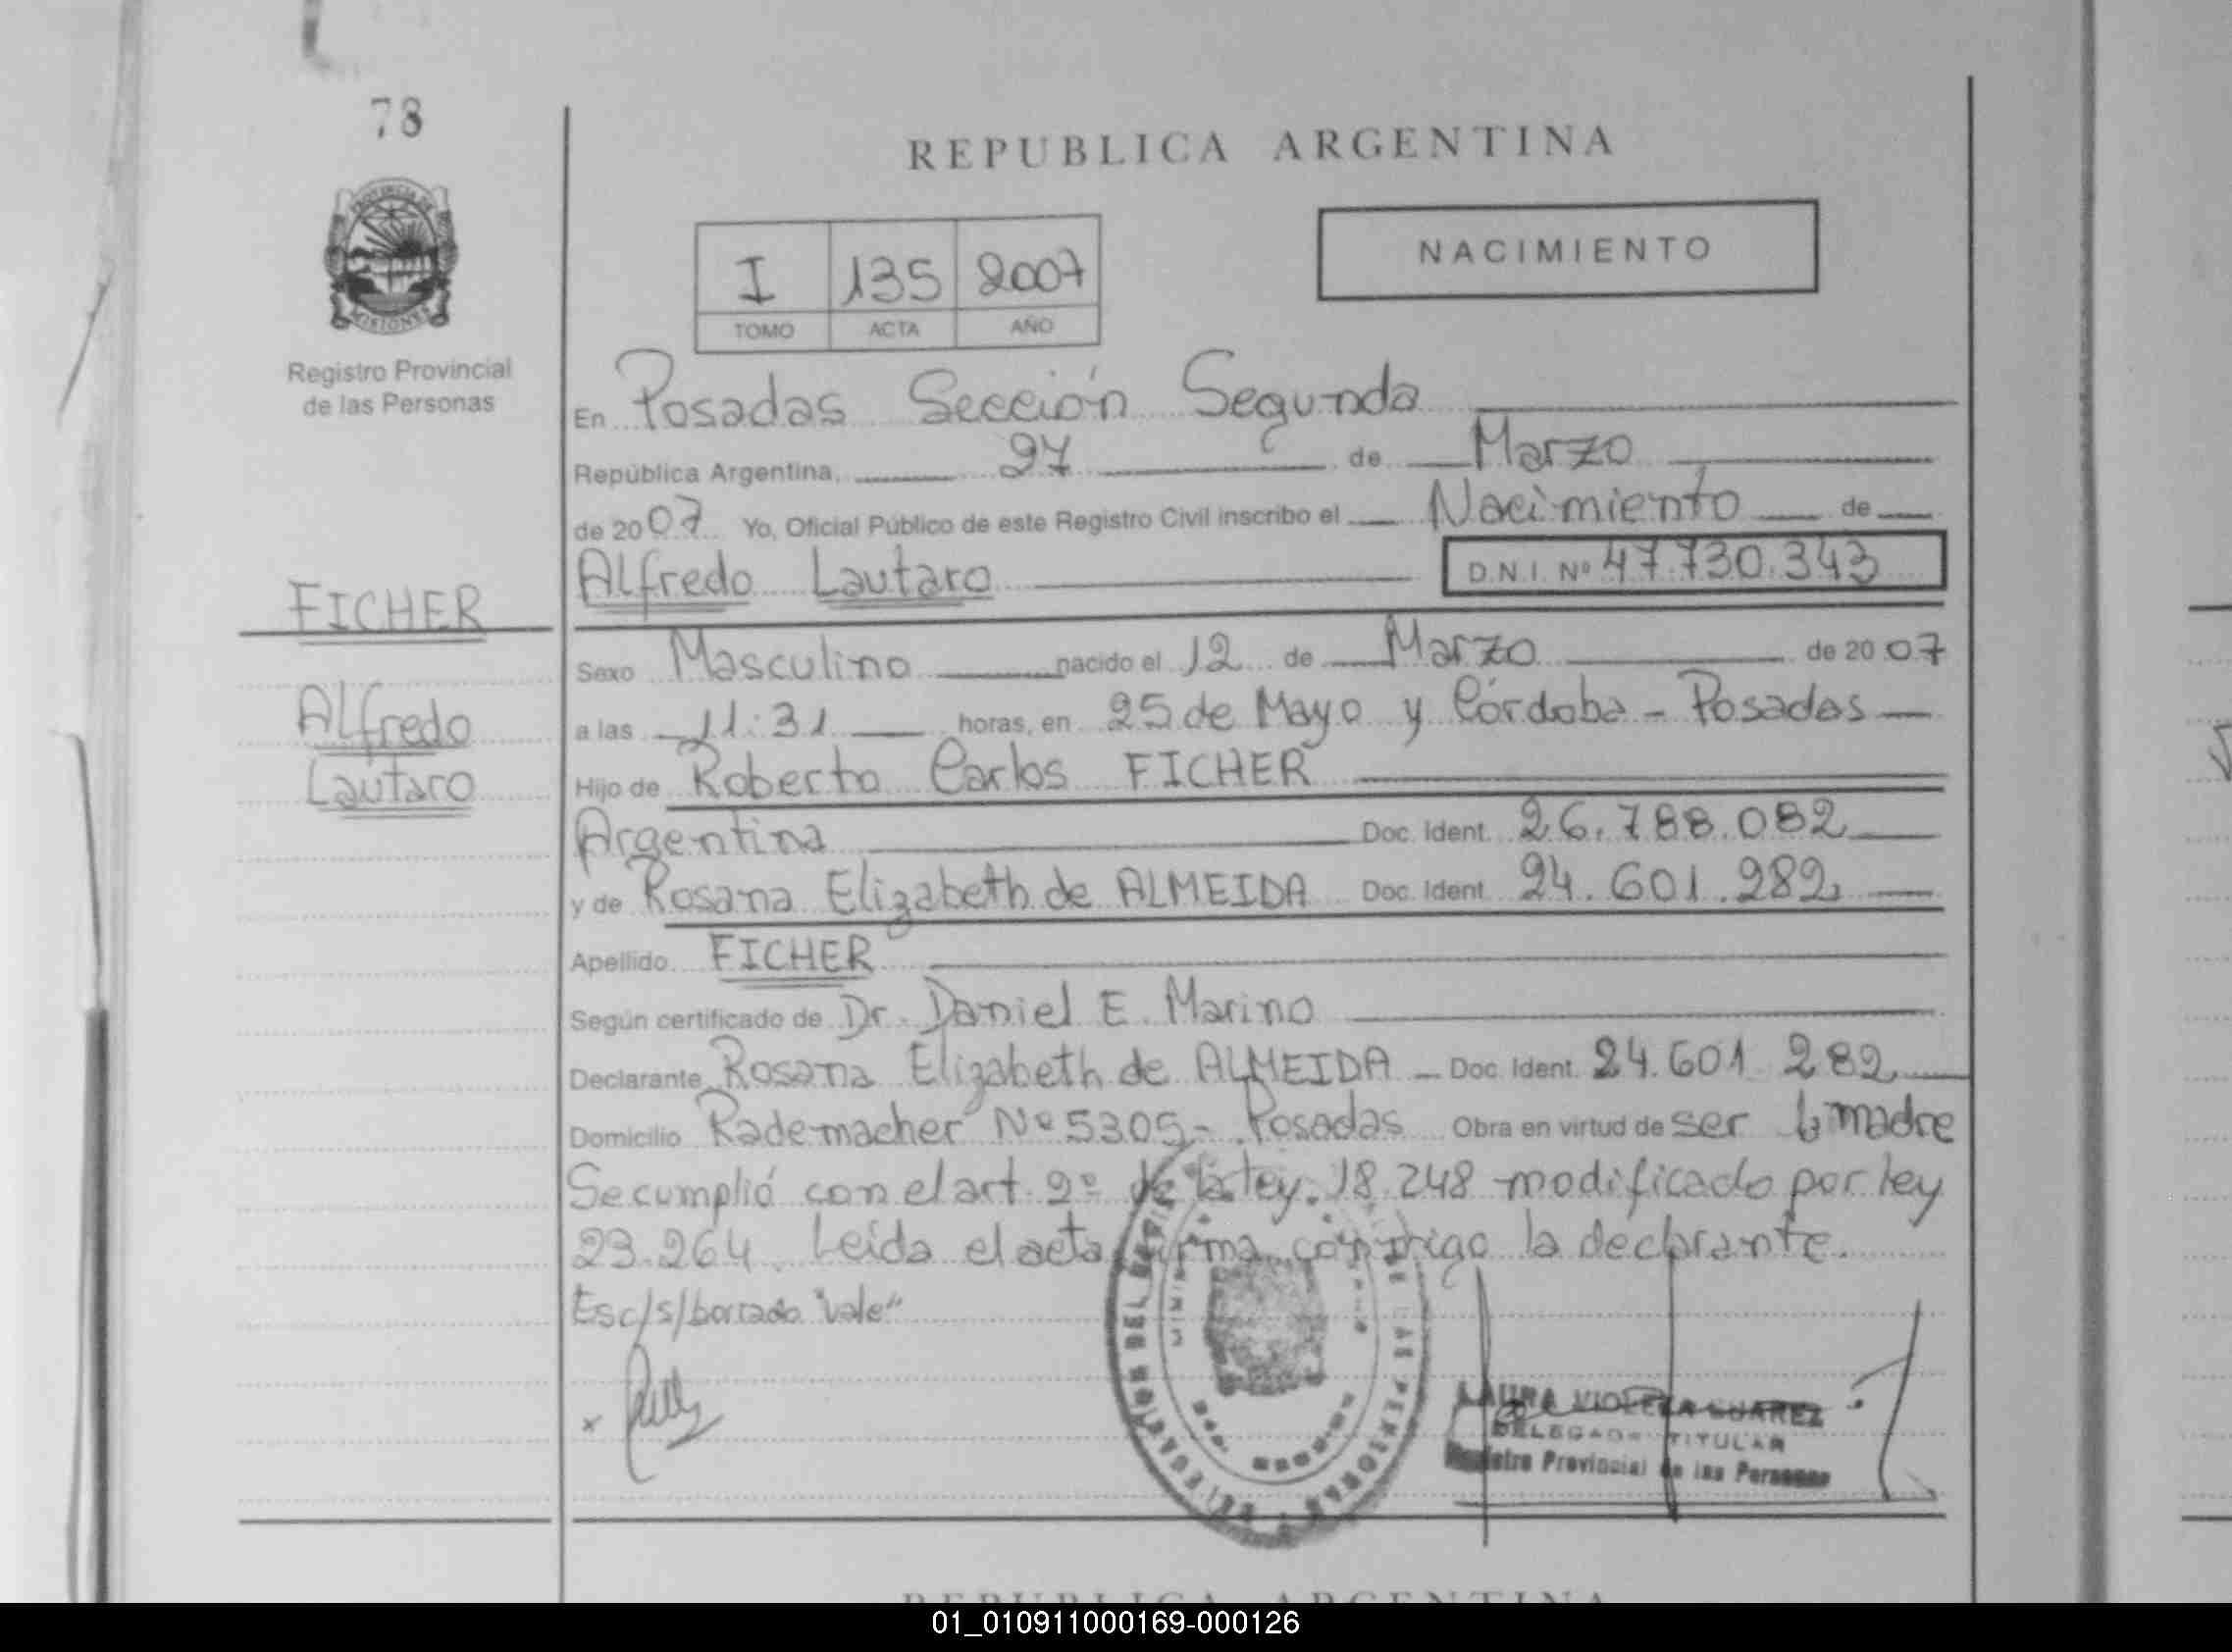 78
REPUBLICA ARGENTINA
PROVINCIA DE
MISIONES
Registro Provincial
de las Personas
I 135 2007
TOMO ACTA AÑO
NACIMIENTO
En Posadas Sección Segunda
República Argentina, 27 de Marzo
de 2007 Yo, Oficial Público de este Registro Civil inscribo el Nacimiento de
Alfredo Lautaro D.N.I. Nº 47.730.343
FICHER
Alfredo
Lautaro
Sexo Masculino nacido el 12 de Marzo de 2007
a las 11:31 horas, en 25 de Mayo y Córdoba - Posadas
Hijo de Roberto Carlos FICHER
Argentina Doc. Ident. 26.788.082
y de Rosana Elizabeth de ALMEIDA Doc. Ident. 24.601.282
Apellido FICHER
Según certificado de Dr. Daniel E. Marino
Declarante Rosana Elizabeth de ALMEIDA - Doc. Ident. 24.601.282
Domicilio Rademacher Nº 5305 - Posadas Obra en virtud de ser la madre
Se cumplió con el art. 2º de la ley. 18.248 modificado por ley
23.264. Leída el acta firma conmigo la declarante.
Esc/s/borrado "vale"
x
LAURA VIOLETA SUAREZ
DELEGADA TITULAR
Registro Provincial de las Personas
REPUBLICA ARGENTINA
01_010911000169-000126